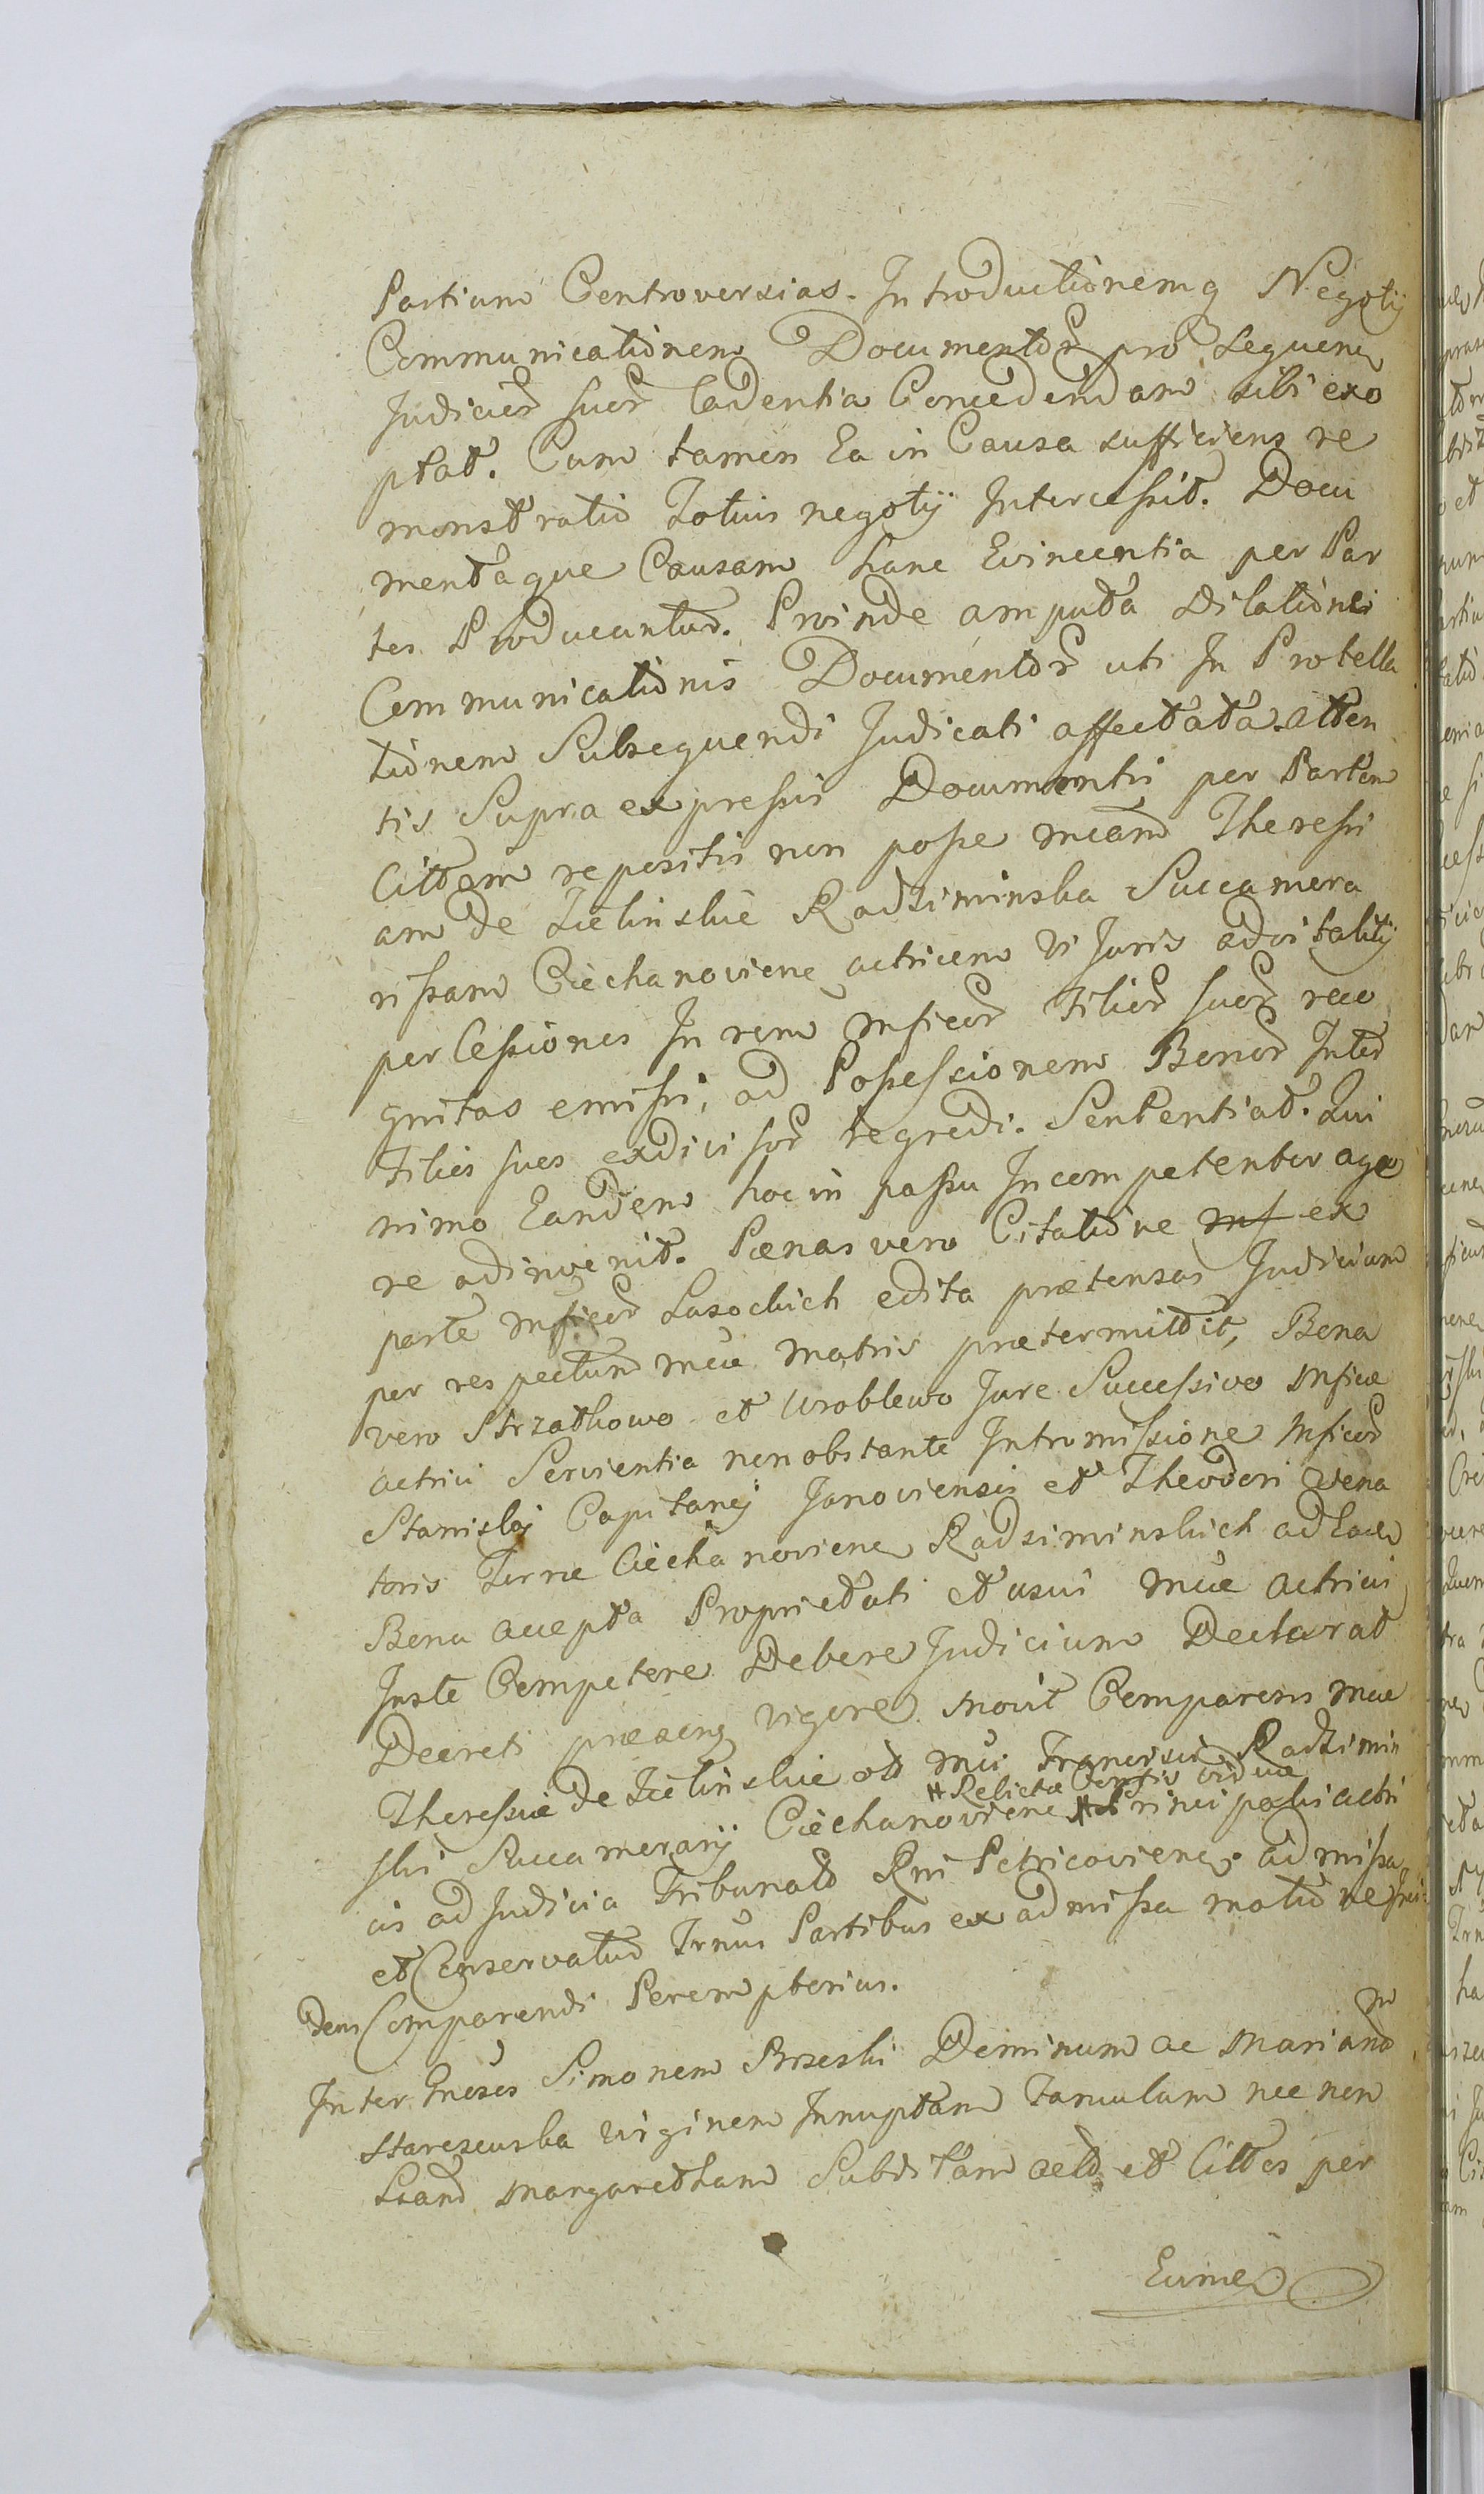 Partium Controversias. Introductionemq Negotÿ
Communicationem Documentor pro Sequen
Judicior suor Cadentia Concedendam sibi exo
ptat. Cum tamen Ea in Causa sufficiens re
monstratio Totius negotÿ Intercessit. Docu
mentaque Causam hanc Evincentia per Par
tes Producuntur. Proinde amputa Dilationei
Communicationis Documentor uti In Protella
tionem Subsequendi Judicati affectata. atten
tis Supra expressis Documentis per Partem
Cittam repositis non posse mcam Theressi
am de Zielinskie Radziminska Succamera
rissam Ciechanoviene actricem Vi Juris advitalitÿ
per Cessiones In rem mficor Filior suor reco
gnitas emissi, ad Possessionem Bonor Inter
Filios suos exdivisor regredi. Sententiat. Qui
nimo Eandem hoc in passu Incompetenter age
re adinvenit. Pænas vero Citatione ex
parte mficor Lasockich edita prætensas Judicium
per respectum mcæ Matris prætermittit, Bona
vero Strzathowo et Wroblewo Jure Successivo mficæ
actrici Servientia non obstante Intromissione Mficor
Stanislaj Capitanej Janoviensis et Theodori Vena
toris Terræ Ciechanoviene Radziminskich ad Eade
Bona accepta Proprietati et usui mcæ actrici
Juste Competere Debere Judicium Declarat
Decreti præsenq vigore. Movit Comparens mcæ
Theressiæ de Zielinskie olt mci Francisci Radzimin
ski Succamerarÿ Ciechanoviene # Principalis actri
# Relictæ Viduæ
cis ad Judicia Tribunalr Rni Petricoviene. admissa
et Conservatur Trnus Partibus ex admissa motione Ibi
dem Comparendi Peremptorius.
Inter Gnosos Simonem Brzeski Dominum ac Mariam
Stareszewska virginem Innuptam Famulam nec non
Margaretham Subditam actr et Cittos per
Eume